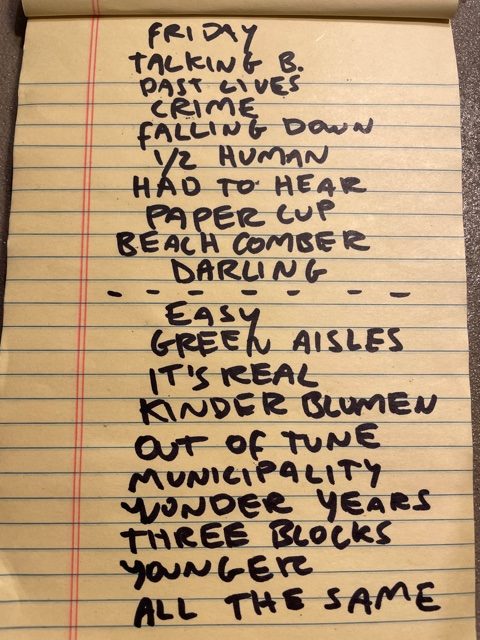 FRIDAY
TALKING B.
PAST LIVES
CRIME
FALLING DOWN
1/2 HUMAN
HAD TO HEAR
PAPER CUP
BEACH COMBER
DARLING
- - - - - - -
EASY
GREEN AISLES
IT'S REAL
KINDER BLUMEN
OUT OF TUNE
MUNICIPALITY
WONDER YEARS
THREE BLOCKS
YOUNGER
ALL THE SAME